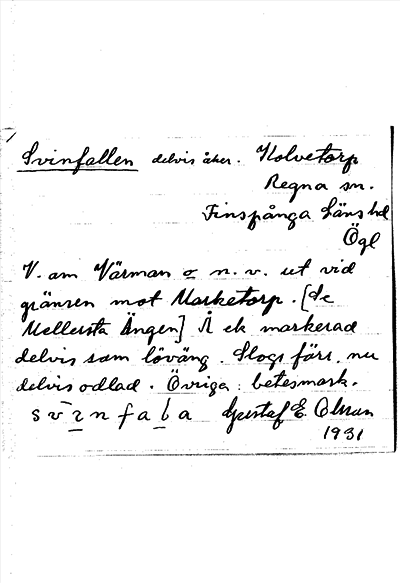 Svinfallen delvis åker. Holvetorp
Regna sn.
Finspånga Läns hd
Ögl
V. om Värman o n. v. ut vid
gränsen mot Marketorp. [de
Mellersta Ängen] Å ek markerad
delvis som löväng. Slogs förr, nu
delvis odlad. Övriga: betesmark.
Gustaf E. Olsson
1931